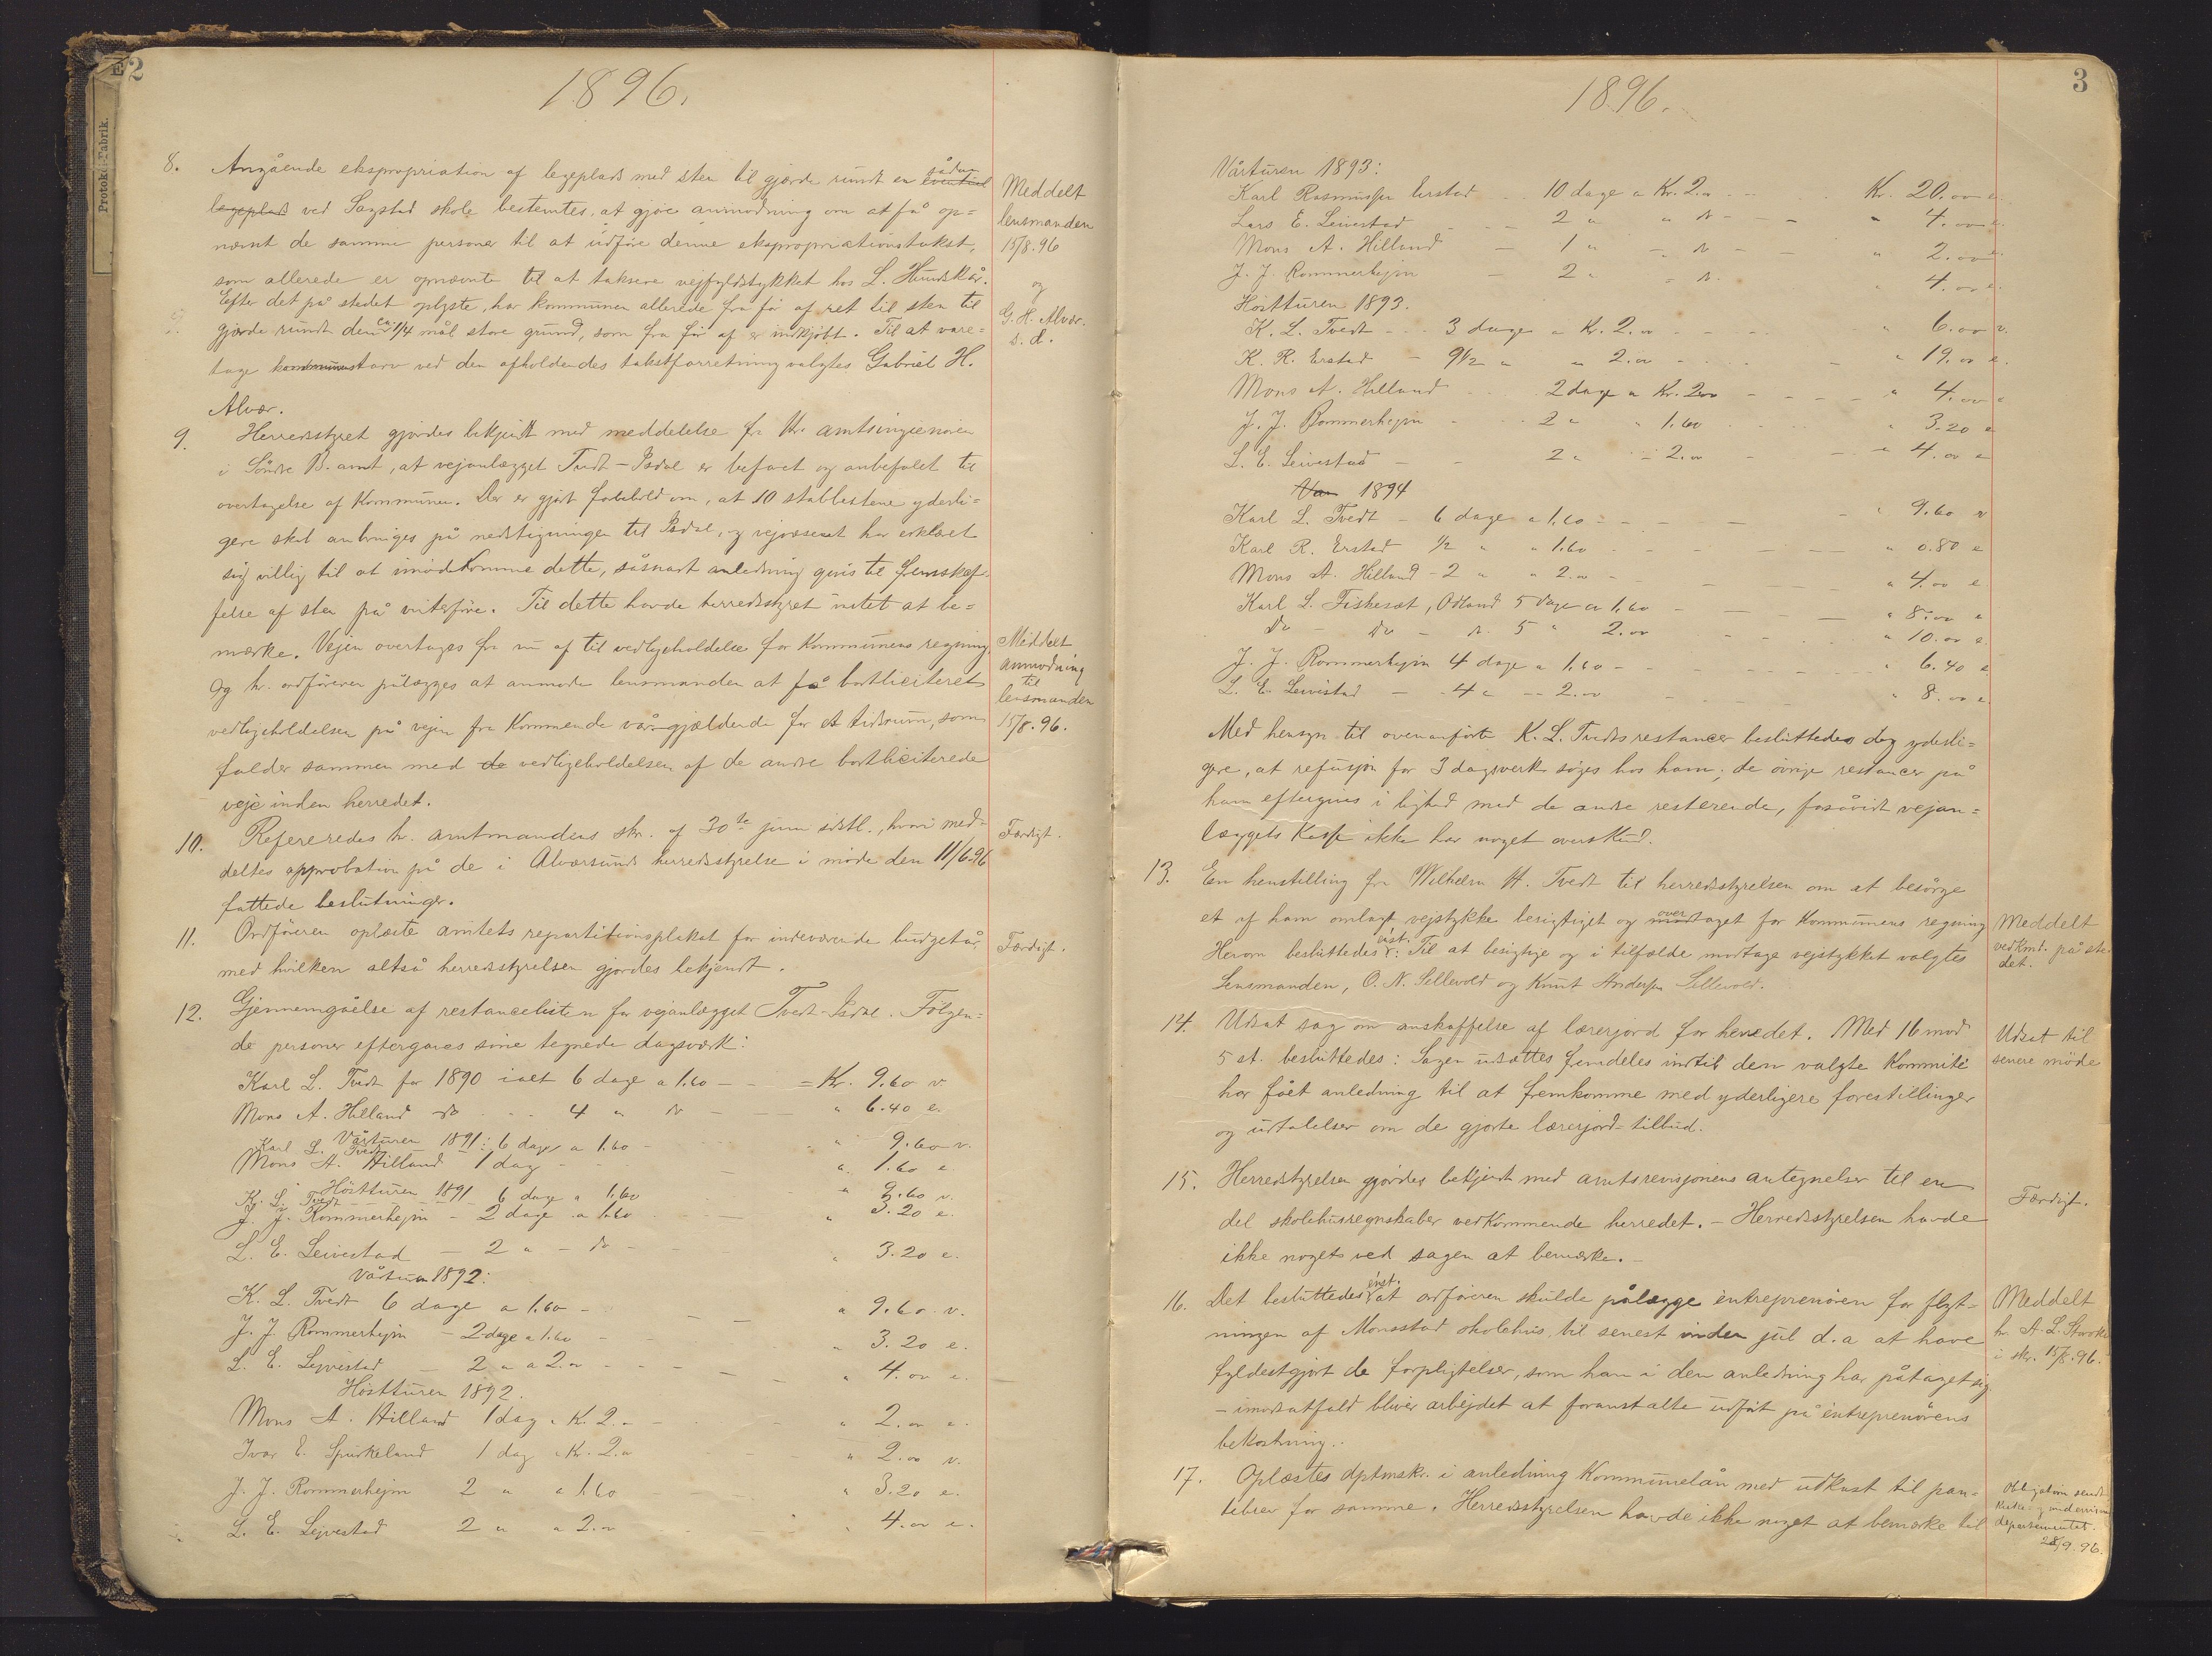 Protokol-Fabrik.
2
1896.
8. Angående ekspropriation af legeplads med sten til gjærde rundt en sådan eventuel
legeplads ved Sagstad skole bestemtes, at gjøre anmodning om at få op=
nævnt de samme personer til at udføre denne ekspropriationstakst,
som allerede er opnævnte til at taksere vejfyldstykket hos L. Hundskår.
Efter det på stedet oplyste, har kommunen allerede fra før af ret til sten til
gjærde rundt den ca. 1/4 mål store grund, som fra før af er indkjøbt. Til at vare=
tage kommunens tarv ved den afholdendes takstforretning valgtes Gabriel H.
Alvær.
Meddelt
lensmanden
15/8.96
og
G. H. Alvær.
s. d.
9. Herredsstyret gjordes bekjendt med meddelelse fra Hr. amtsingienøren
i Søndre B. amt, at vejanlægget Tvedt-Isdal er befaret og anbefalet til
overtagelse af Kommunen. Der er gjort forbehold om, at 10 stabbestene yderli=
gere skal anbringes på nedstigningen til Isdal, og vejvæsenet har erklæret
sig villig til at imødekomme dette, såsnart anledning givs til fremskaf=
felse af sten på vinterføre. Til dette havde herredsstyret intet at be=
mærke. Vejen overtages fra nu af til vedligeholdelse for Kommunens regning,
og hr. ordføreren pålægges at anmode lensmanden at få bortliciteret
vedligeholdelsen på vejen fra Kommende vår gjældende for et tidsrum, som
falder sammen med de vedligeholdelsen af de andre bortliciterede
veje inden herredet.
Meddelt
anmodning
til
lensmanden
15/8.96.
10. Refereredes hr. amtmandens skr. af 30te juni sidstl., hvori med=
deltes approbation på de i Alversunds herredsstyrelse i møde den 11/6.96
fattede beslutninger.
Færdigt.
11. Ordføreren oplæste amtets repartitionsplakat for indeværende budgetår,
med hvilken altså herredsstyrelsen gjordes bekjendt.
Færdigt.
12. Gjennemgåelse af restancelisten for vejanlægget Tvedt-Isdal. Følgen=
de personer eftergaves sine tegnede dagsværk:
Karl L. Tvedt for 1890 ialt 6 dage a 1.60 - - = Kr. 9.60 v
Mons A. Hilland do - - 4 " do - " 6.40 e.
Vårturen 1891:
Karl L. Tvedt 6 dage a 1.60 - " 9.60 v.
Mons A. Hilland 1 dag - - " 1.60 e
Høstturen 1891
K. L. Tvedt - 6 dage a 1.60 " 9.60 v.
J. J. Rommerhejm - 2 dage a 1.60 " 3.20 e.
L. E. Leivestad - 2 " - do - " 3.20 e.
Vårturen 1892:
K. L. Tvedt 6 dage a 1.60 - " 9.60 v.
J. J. Rommerhejm - 2 dage a 1.60 - " 3.20 e.
L. E. Lejvestad - 2 " a 2.00 - - " 4.00 e.
Høstturen 1892.
Mons A. Hilland 1 dag a K. 2.00 - " 2.00 e.
Ivar E. Spurkeland 1 dag a Kr. 2.00 " 2.00 v.
J. J. Rommerhejm 2 " a 1.60 " 3.20 e.
L. E. Lejvestad 2 " a 2.00 " 4.00 e.
3
1896.
Vårturen 1893:
Karl Rasmussen Erstad - - 10 dage a Kr. 2.00 - - Kr. 20.00 e.
Lars E. Leivestad - - 2 " " do - - " 4.00 e.
Mons A. Hilland - 1 " " do - " 2.00 e
J. J. Rommerhejm - 2 " " do " 4.00 e.
Høstturen 1893.
K. L. Tvedt - - 3 dage a Kr. 2.00 - - " 6.00 v.
K. R. Erstad - 9 1/2 " " 2.00 - - " 19.00 e.
Mons A. Hilland - - 2 dage a Kr. 2.00 - - " 4.00 e
J. J. Rommerhejm - - 2 " " 1.60 - - " 3.20 e
L. E. Leivestad - - 2 " " 2.00 - - " 4.00 e
Vår 1894
Karl L. Tvedt - 6 dage a 1.60 - - " 9.60 v
Karl R. Erstad 1/2 " " 1.60 - - " 0.80 e
Mons A. Hilland - 2 " " 2.00 - - " 4.00 e
Karl L. Fiskeset, Odland 5 dage a 1.60 - - " 8.00 e
Do - do - do. 5 " 2.00 - - " 10.00 e.
J. J. Rommerhejm 4 dage a 1.60 - - " 6.40 e
L. E. Leivestad - 4 " - 2.00 - " 8.00 e.
Med hensyn til ovenanførte K. L. Tvedts restancer besluttedes dog yderli=
gere, at refusjon for 3 dagsverk søges hos ham; de øvrige restancer på
ham eftergives i lighed med de andre resterende, forsåvidt vejan=
læggets Kasse ikke har noget overskud.
13. En henstilling fra Wilhelm H. Tvedt til herredsstyrelsen om at besørge
et af ham omlagt vejstykke besigtiget og over modtaget for Kommunens regning.
Herom besluttedes énst.: Til at besigtige og i tilfælde modtage vejstykket valgtes
Lensmanden, O. N. Sellevold og Knut Andersen Sellevold.
Meddelt
vedkmd. på ste
det.
14. Udsat sag om anskaffelse af lærerjord for herredet. Med 16 mod
5 st. besluttedes: Sagen udsættes fremdeles indtil den valgte Kommité
har fået anledning til at fremkomme med yderligere forestillinger
og udtalelser om de gjorte lærerjord-tilbud.
Udsat til
senere møde
15. Herredsstyrelsen gjordes bekjendt med amtsrevisjonens antegnelser til en
del skolehusregnskaber vedkommende herredet. - Herredsstyrelsen havde
ikke noget ved sagen at bemærke. -
Færdigt.
16. Det besluttedes énst. at ordføreren skulde pålægge entreprenøren for flyt=
ningen af Monsstad skolehus, til senest inden jul d. a at have
fyldestgjort de forpligtelser, som han i den anledning har påtaget sig
- imodsatfald bliver arbejdet at foranstalte udført på entreprenørens
bekostning.
Meddelt
hr. A. L.
i skr. 15/8.96.
17. Oplæstes dptmskr. i anledning Kommunelån med udkast til pan=
tebrev for samme. Herredsstyrelsen havde ikke noget at bemærke til
Obligation sendt
Kirke- og undervisn
departementet.
28/9.96.